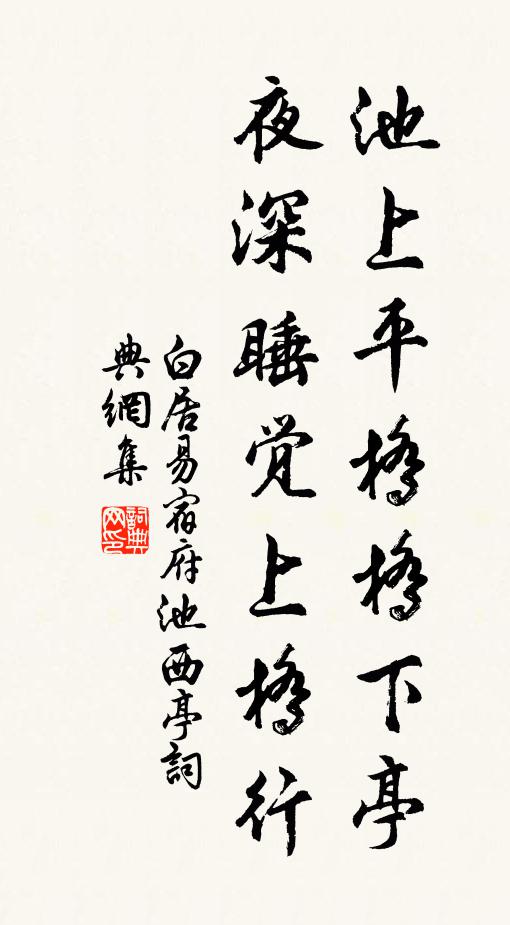 池上平橋橋下亭
夜深睡觉上橋行
白居易宿府池西亭詞
典網集
詞典网印